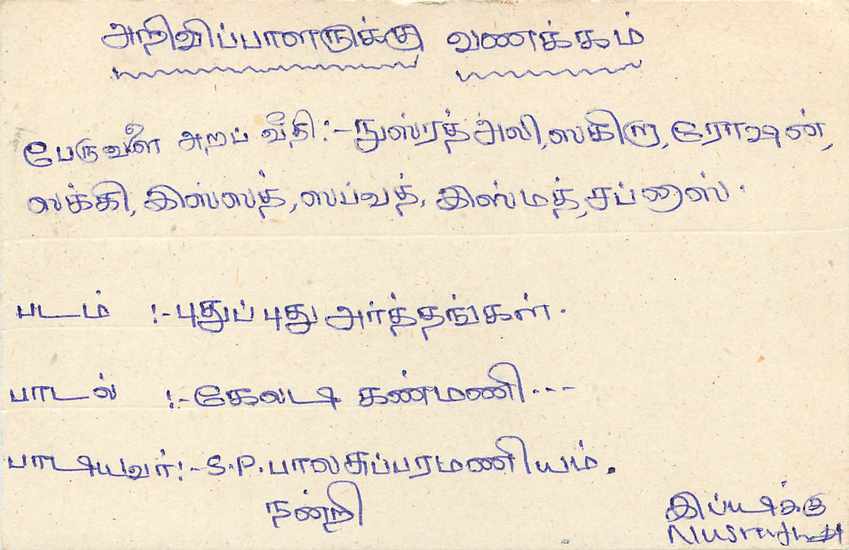 அறிவிப்பாளருக்கு வணக்கம்
பேருவளை அறப் வீதி:- நுஸ்ரத் அலி, ஸகிரு, ரோஷன்,
லக்கி, இஸ்ஸத், ஸப்வத், இஸ்மத், சப்னாஸ்.
படம் :- புதுப் புது அர்த்தங்கள்.
பாடல் :- கேலடி கண்மணி---
பாடியவர்:- S.P.பாலசுப்பரமணியம்.
நன்றி
இப்படிக்கு